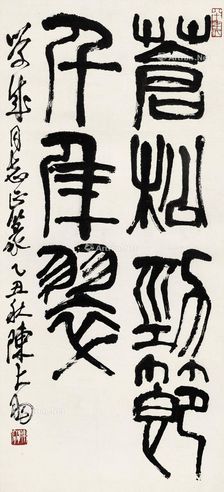 蒼松勁節
千年翠
同志正篆乙丑秋陳大羽